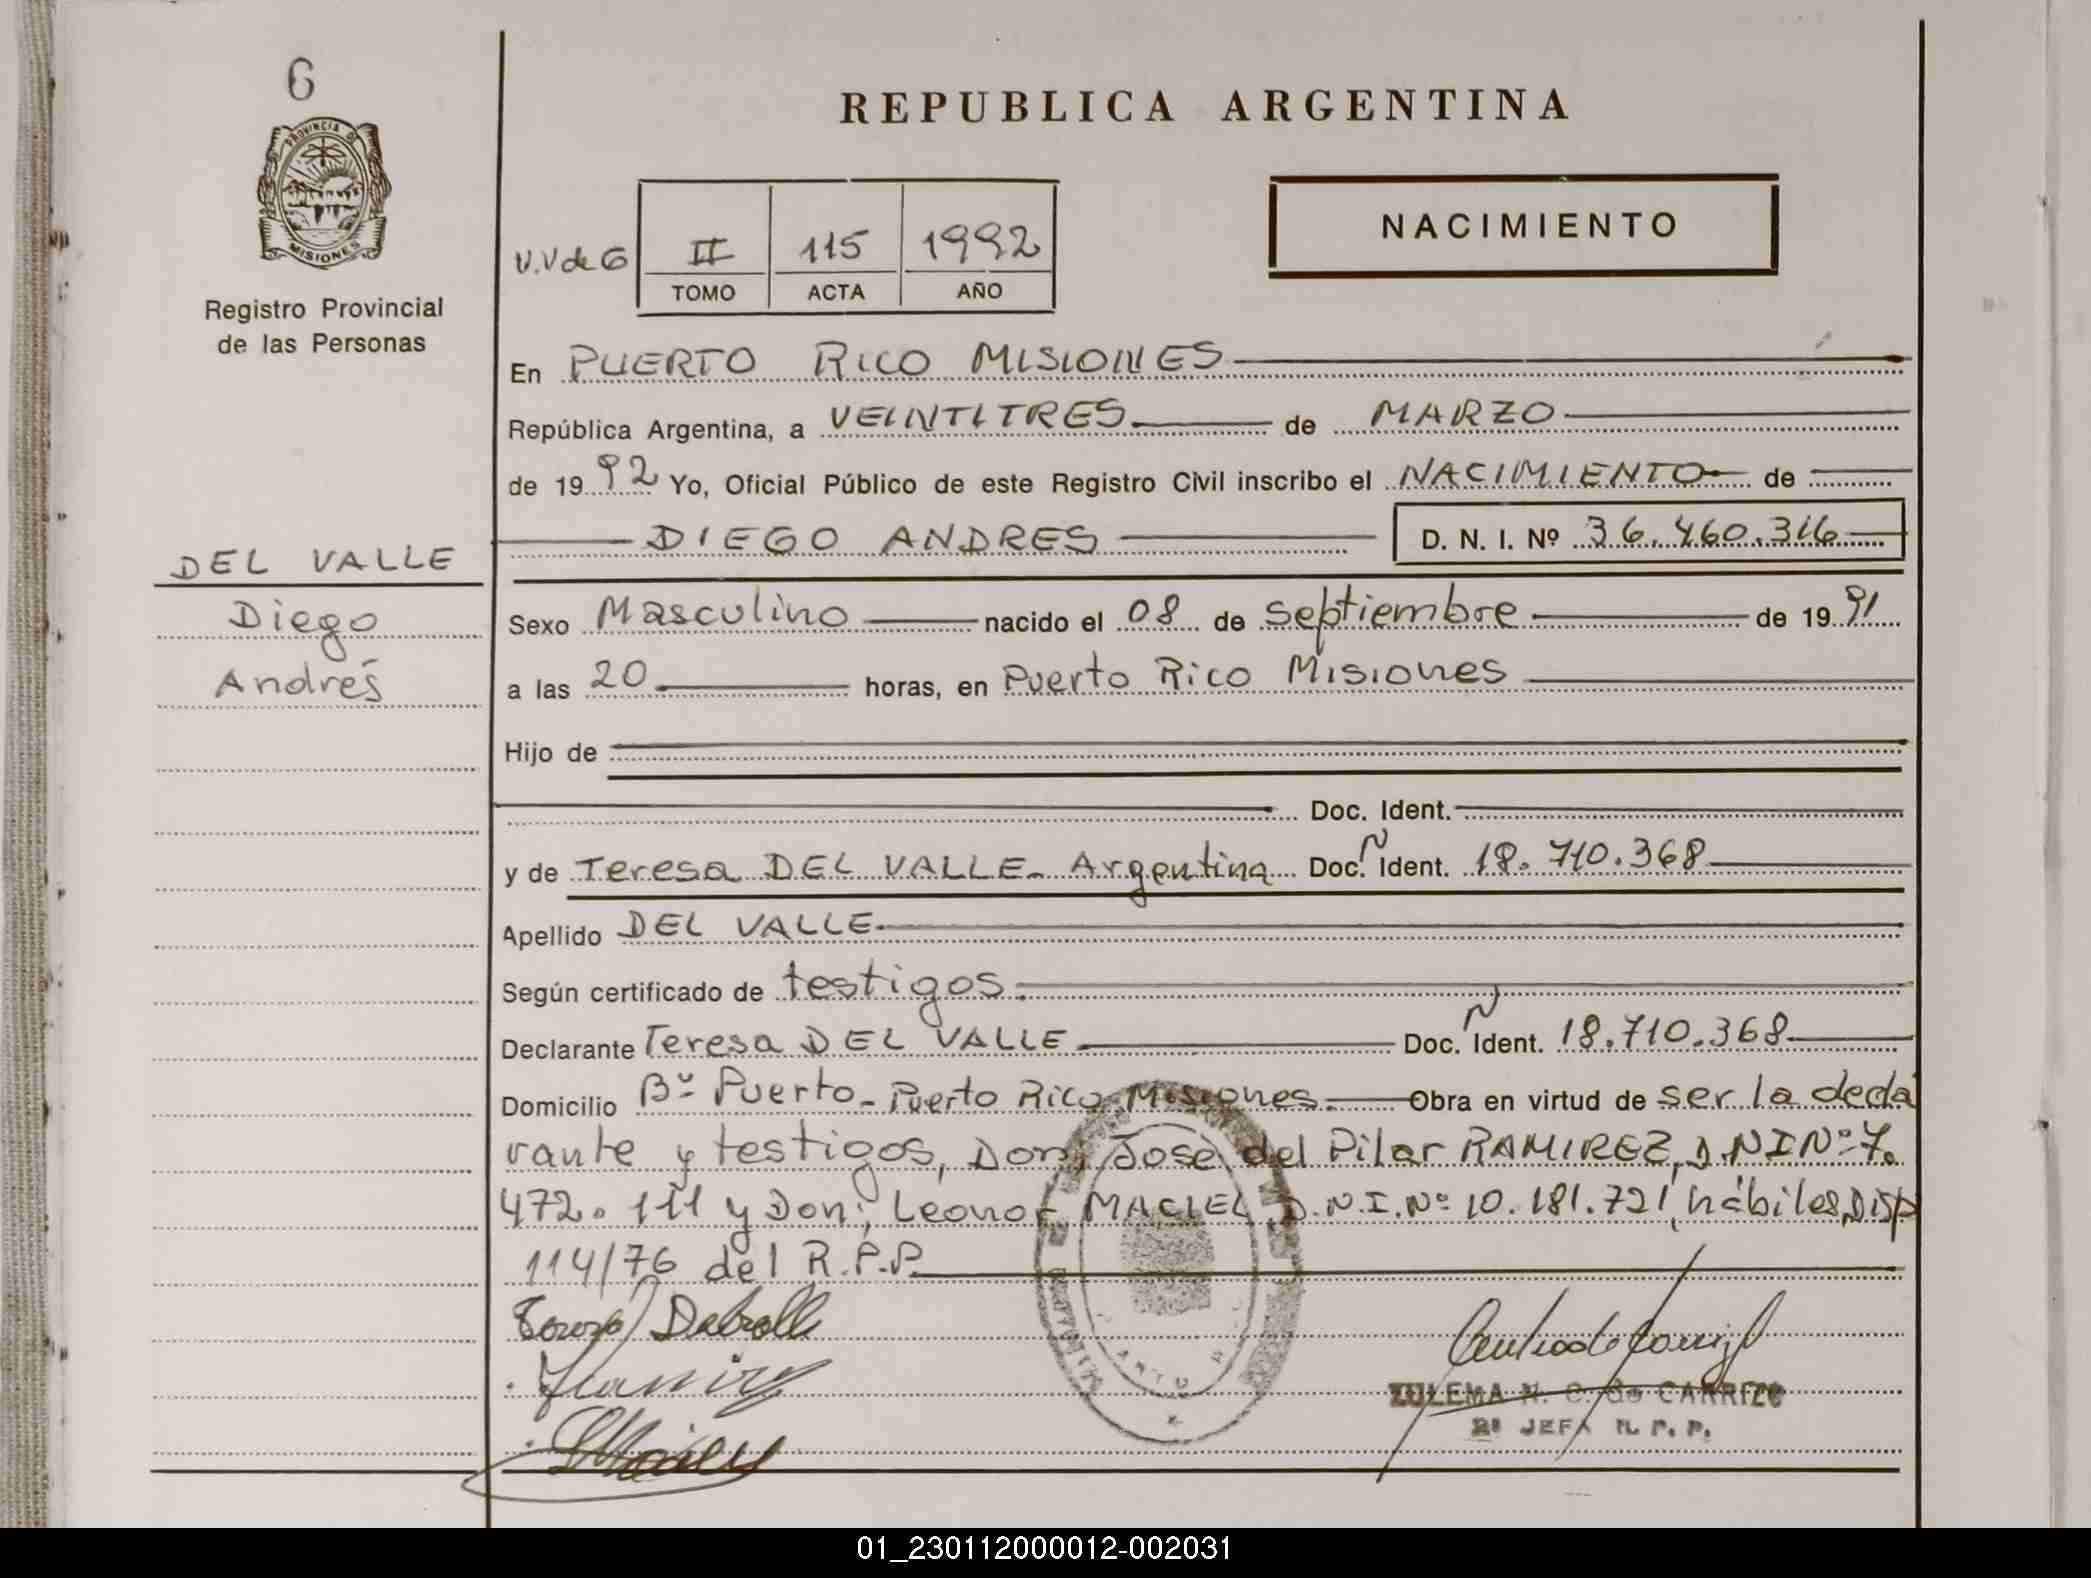 6
PROVINCIA DE
MISIONES
Registro Provincial
de las Personas
DEL VALLE
Diego
Andrés
REPUBLICA ARGENTINA
NACIMIENTO
V.V de G II 115 1992
TOMO ACTA AÑO
En PUERTO RICO MISIONES
República Argentina, a VEINTITRES de MARZO
de 1992 Yo, Oficial Público de este Registro Civil inscribo el NACIMIENTO de
DIEGO ANDRES D. N. I. Nº 36.460.316
Sexo Masculino nacido el 08 de septiembre de 1991
a las 20 horas, en Puerto Rico Misiones
Hijo de
Doc. Ident.
y de Teresa DEL VALLE - Argentina Doc. N Ident. 18.710.368
Apellido DEL VALLE
Según certificado de testigos.
Declarante Teresa DEL VALLE Doc. N Ident. 18.710.368
Domicilio Bº Puerto - Puerto Rico Misiones. Obra en virtud de ser la decla
rante y testigos, Don; José del Pilar RAMIREZ, D.NI Nº 7.
472.111 y Don; Leonor MACIEL D.N.I.Nº 10.181.721, hábiles, Disp
114/76 del R.P.P.
ZULEMA N. C. de CARRIZO
2º JEFA R. P. P.
01_230112000012-002031